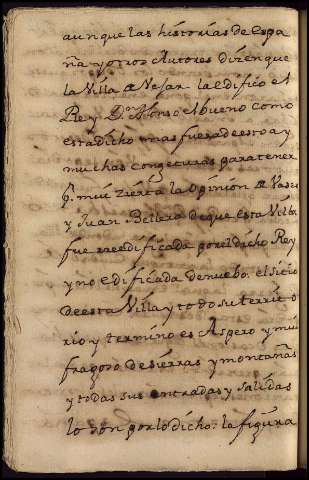 aunque las historias de Espa
ña y otros Autores dizen que
la Villa de Vejar la edifico el
Rey Dⁿ Alonso el bueno como
esta dicho mas fuera de esto ay
muchas congeturas para tener
pʳ mui zierta la opinion de Vaseo
y Juan Bellero de que esta Villa
fue rreedificada por el dicho Rey
y no edificada de nuebo. el sitio
de esta Villa y todo su territo
rio y termino es Aspero y mui
fragoso de sierras y montañas
y todas sus entradas y salidas
lo son por lo dicho: la figura